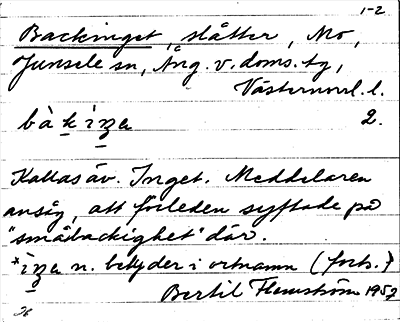 1-2
Backinget, slåtter, Mo,
Junsele sn, Ång. v. doms. tg,
Västernorrl. l.
bàkìŋa 2.
Kallas äv. Inget. Meddelaren
ansåg, att förleden syftade på
"småbackighet" där.
*ìŋa n. betyder i ortnamn (forts.)
Bertil Flemström 1957